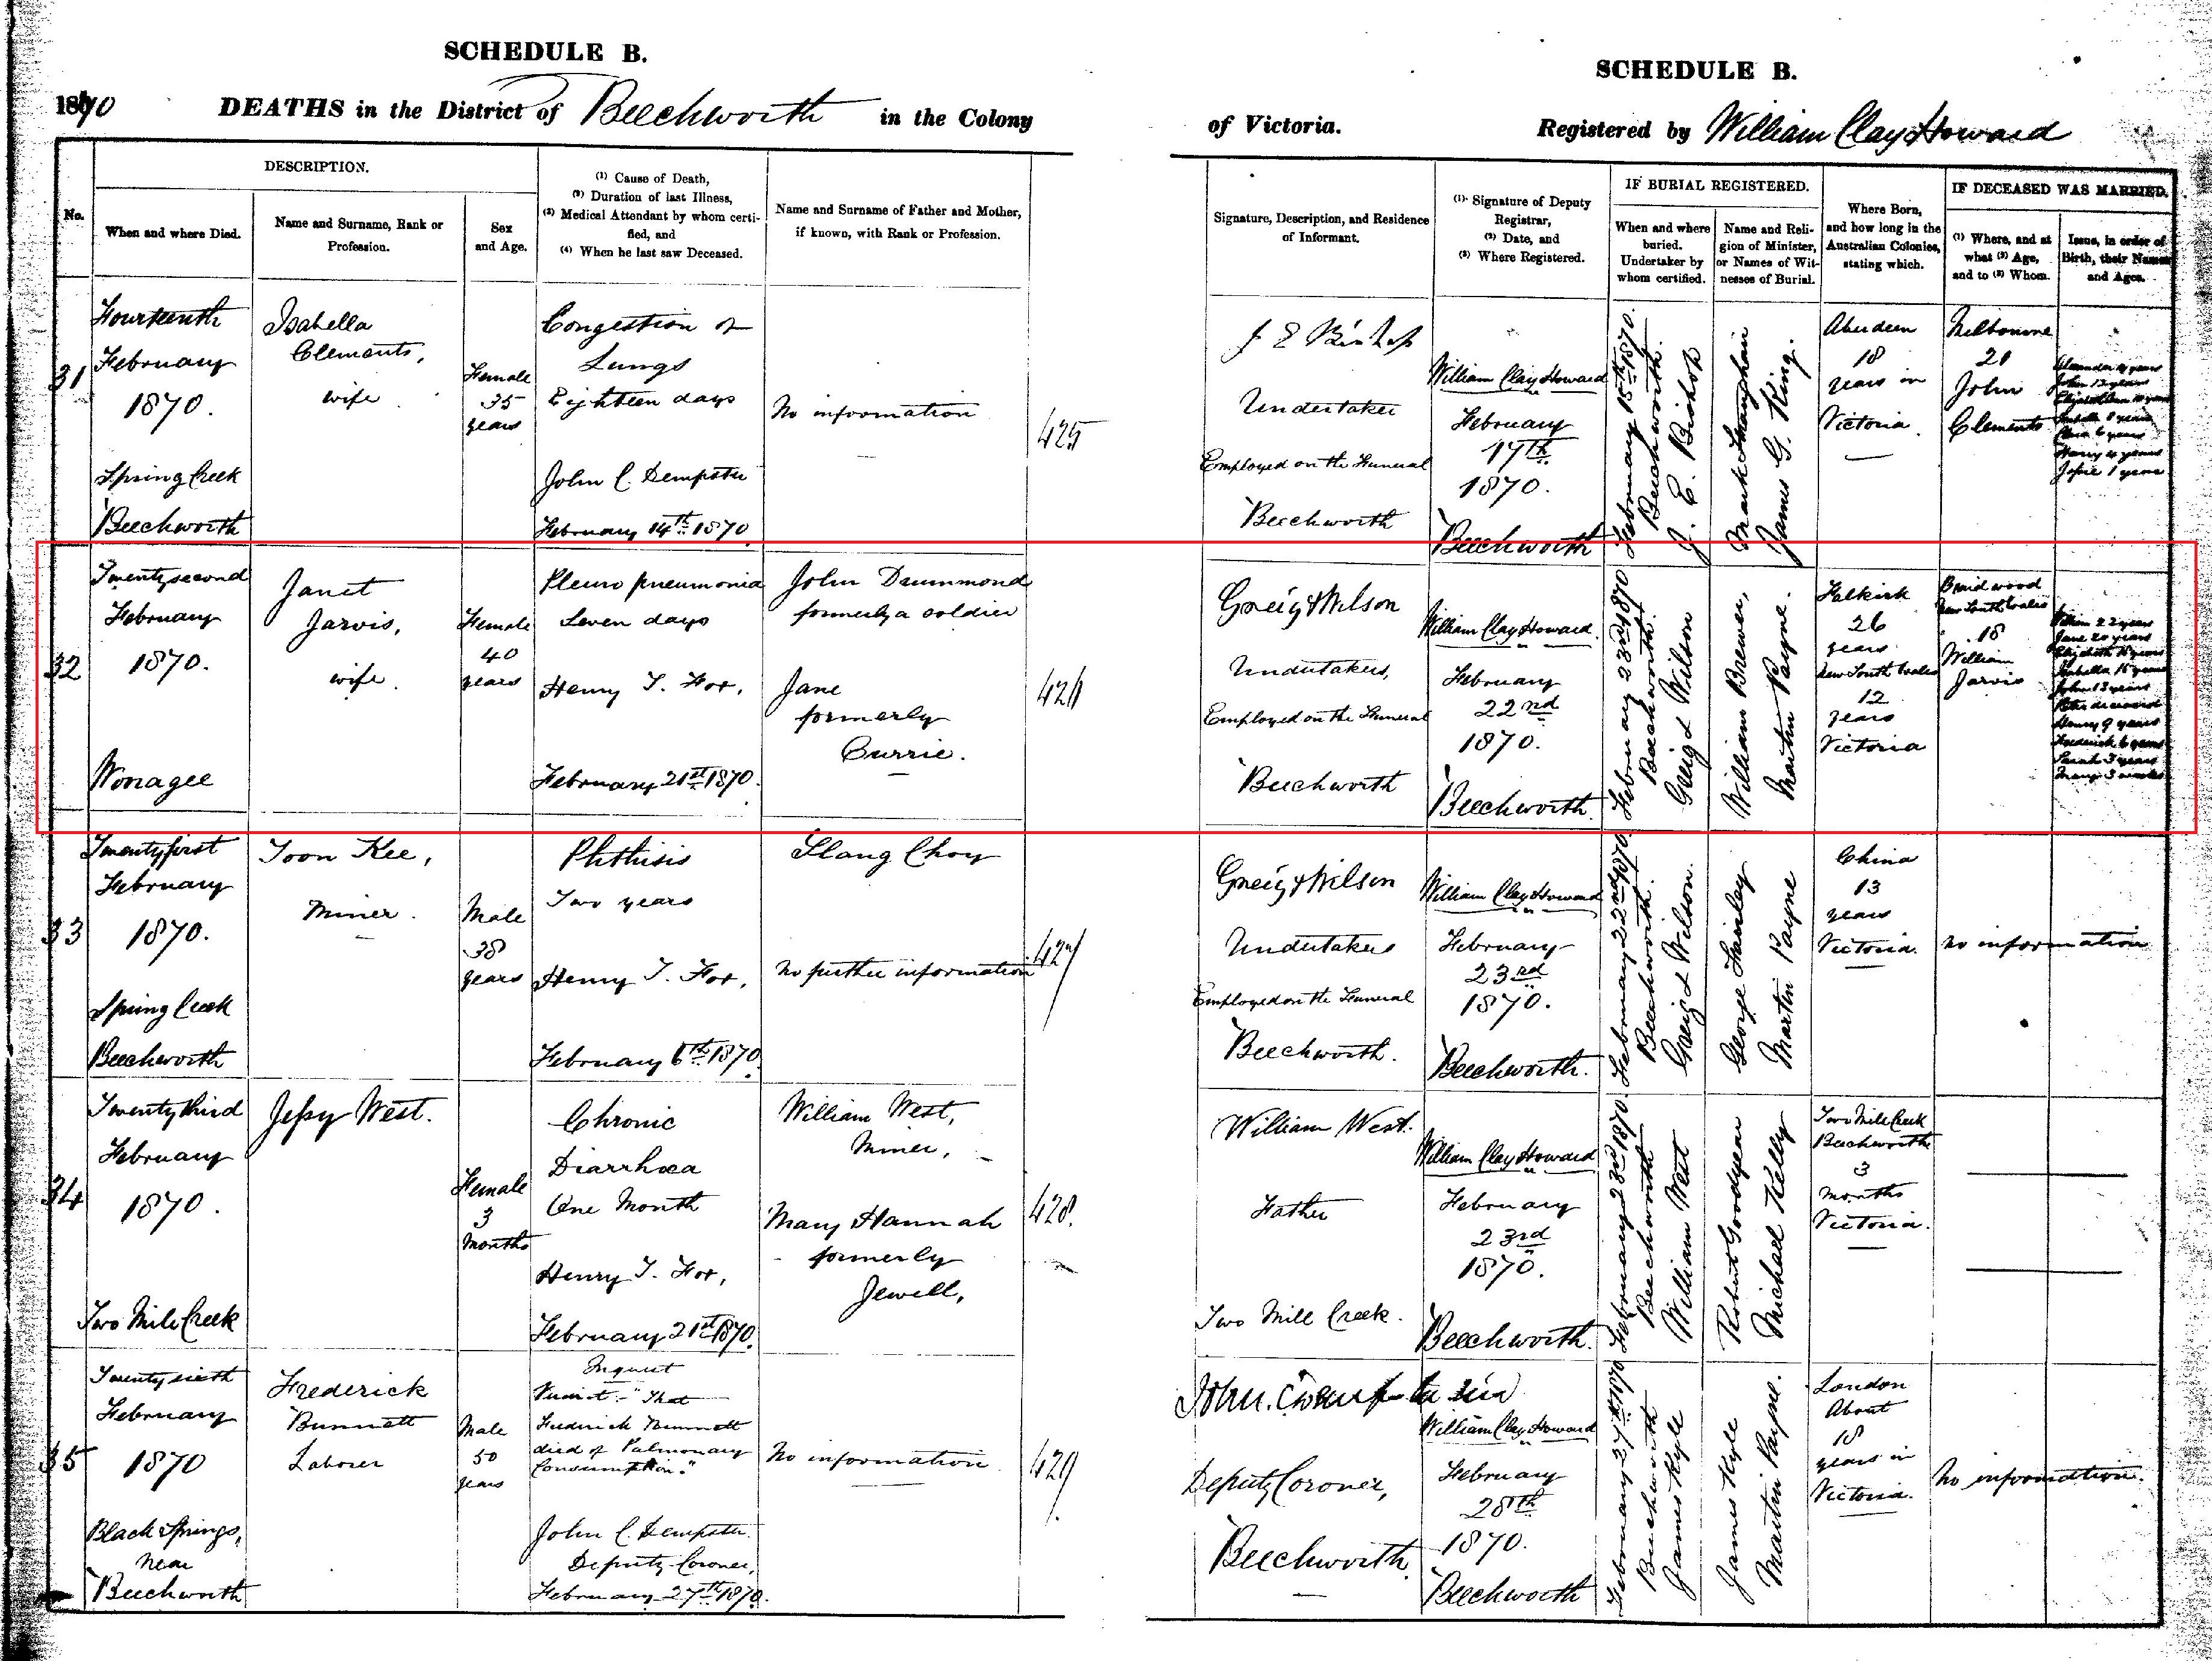 SCHEDULE B.
1870 DEATHS in the District of Beechworth in the Colony
No.
DESCRIPTION.
When and where Died.
Name and Surname, Rank or
Profession.
Sex
and Age.
(1) Cause of Death,
(2) Duration of last Illness,
(3) Medical Attendant by whom certi-
fied, and
(4) When he last saw Deceased.
Name and Surname of Father and Mother,
if known, with Rank or Profession.
31
Fourteenth
February
1870.
Spring Creek
Beechworth
Isabella
Clements,
wife
Female
35
years
Congestion of
Lungs
Eighteen days
John C. Dempster
February 14th 1870
No information
425
32
Twenty second
February
1870.
Janet
Jarvis,
wife.
Female
40
years
Pleuro pneumonia
Seven days
Henry T. Fox,
February 21st 1870.
John Drummond
formerly a soldier
Jane
formerly
Currie.
33
Twenty first
February
1870.
Spring Creek
Beechworth
Toon Kee,
Miner.
Male
38
years
Phthisis
Two years
Henry T. Fox,
February 6th 1870.
Choy
No further information
427
34
Twenty third
February
1870.
Two Mile Creek
Jessy West.
Female
3
Months
Chronic
Diarrhœa
One Month
Henry T. Fox,
February 21st 1870.
William West,
Miner,
Mary Hannah
formerly
Jewell,
428.
35
Twenty sixth
February
1870
Black Springs,
near
Beechworth
Frederick
Bunnett
Laborer
Male
50
years
Inquest
Verdict:- "That
Frederick Bunnett
died of Pulmonary
Consumption."
John C. Dempster.
Deputy Coroner,
February 27th 1870.
No information
429
SCHEDULE B.
of Victoria. Registered by William Clay Howard
Signature, Description, and Residence
of Informant.
(1) Signature of Deputy
Registrar,
(2) Date, and
(3) Where Registered.
IF BURIAL REGISTERED.
When and where
buried.
Undertaker by
whom certified.
Name and Reli-
gion of Minister,
or Names of Wit-
nesses of Burial.
Where Born,
and how long in the
Australian Colonies,
stating which.
IF DECEASED WAS MARRIED.
(1) Where, and at
what (2) Age,
and to (3) Whom.
Issue, in order of
Birth, their Names
and Ages.
J E Bishop
Undertaker
Employed on the Funeral
Beechworth
William Clay Howard
February
17th
1870.
Beechworth
February 15th 1870.
Beechworth.
J. E. Bishop
Mark
James G. King.
Aberdeen
18
years in
Victoria
Melbourne
21
John
Clements
John 12 years
Henry 4 years
1 year
Greig & Wilson
Undertakers,
Employed on the Funeral
Beechworth
William Clay Howard.
February
22nd
1870.
Beechworth.
February 23rd 1870
Beechworth.
Greig & Wilson
William Brewer,
Martin Payne.
Falkirk
26
years
New South Wales
12
years
Victoria
Braidwood
New South Wales
18
William
Jarvis
William 22 years
Jane 20 years
Elizabeth 18 years
Isabella 15 years
John 13 years
Peter deceased
Henry 9 years
Frederick 6 years
Sarah 3 years
3 weeks
Greig & Wilson
Undertakers
Employed on the Funeral
Beechworth.
William Clay Howard
February
23rd
1870.
Beechworth.
February 22nd 1870
Beechworth.
Greig & Wilson.
George
Martin Payne
China
13
years
Victoria.
No information
William West.
Father
Two Mile Creek.
William Clay Howard
February
23rd
1870.
Beechworth.
February 23rd 1870.
Beechworth
William West
Robert Goodyear
Michael Kelly
Two Mile Creek
Beechworth
3
Months
Victoria.
Deputy Coroner,
Beechworth
William Clay Howard
February
28th
1870.
Beechworth
February 27th 1870
Beechworth
James Kyle
James Kyle
Martin Payne.
London
About
18
years in
Victoria.
No information.